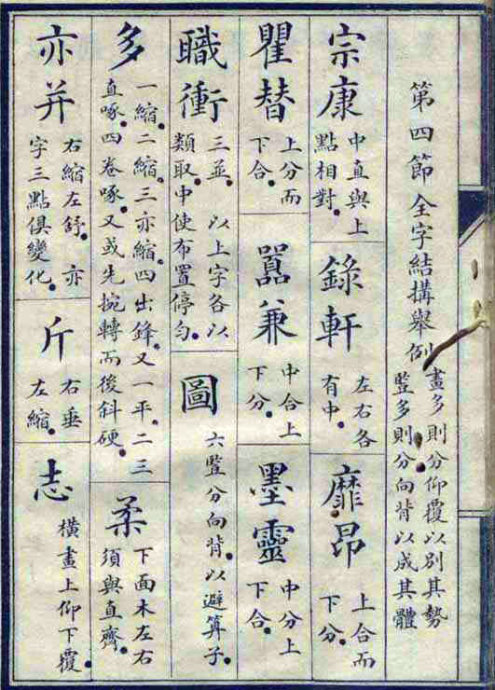 第四節 全字結構舉例 畫多則分仰覆以別其勢
豎多則分向背以成其體
宗康 中直與上
點相對。
錄軒 左右各
有中。
靡昂 上合而
下分。
瞿替 上分而
下合。
嚣兼 中合上
下分。
墨靈 中分上
下合。
職衝 三並。 以上字各以
類取中使布置停勻。
圖 六豎分向背。以避算子。
多 一縮。二縮。三亦縮。四出鋒。又一平。二三
直啄。四卷啄。又或先挽轉而後斜硬。
柔 下面木左右
須與直齊。
亦并 右縮左舒。亦
字三點俱變化。
斤 右垂
左縮。
志 橫畫上仰下覆。